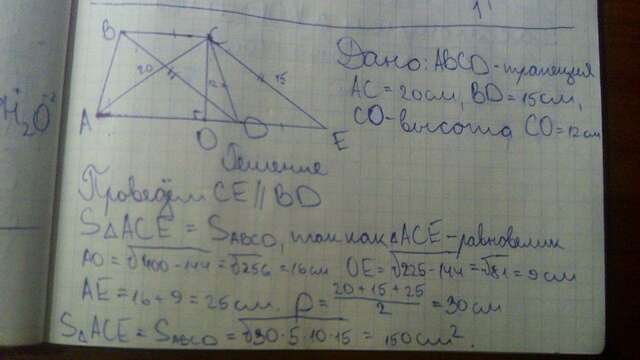 1
H₂⁺O⁻²
B
C
20
12
15
A
O
D
E
Дано: ABCD-трапеция
AC = 20см, BD = 15см,
CO-высота CO = 12см
Решение
Проведём CE || BD
S△ACE = SABCD, так как △ACE-равновелик
AO = √400-144 = √256 = 16см OE = √225-144 = √81 = 9см
AE = 16+9 = 25см. p = (20+15+25)/2 = 30см
S△ACE = SABCD = √30·5·10·15 = 150см².